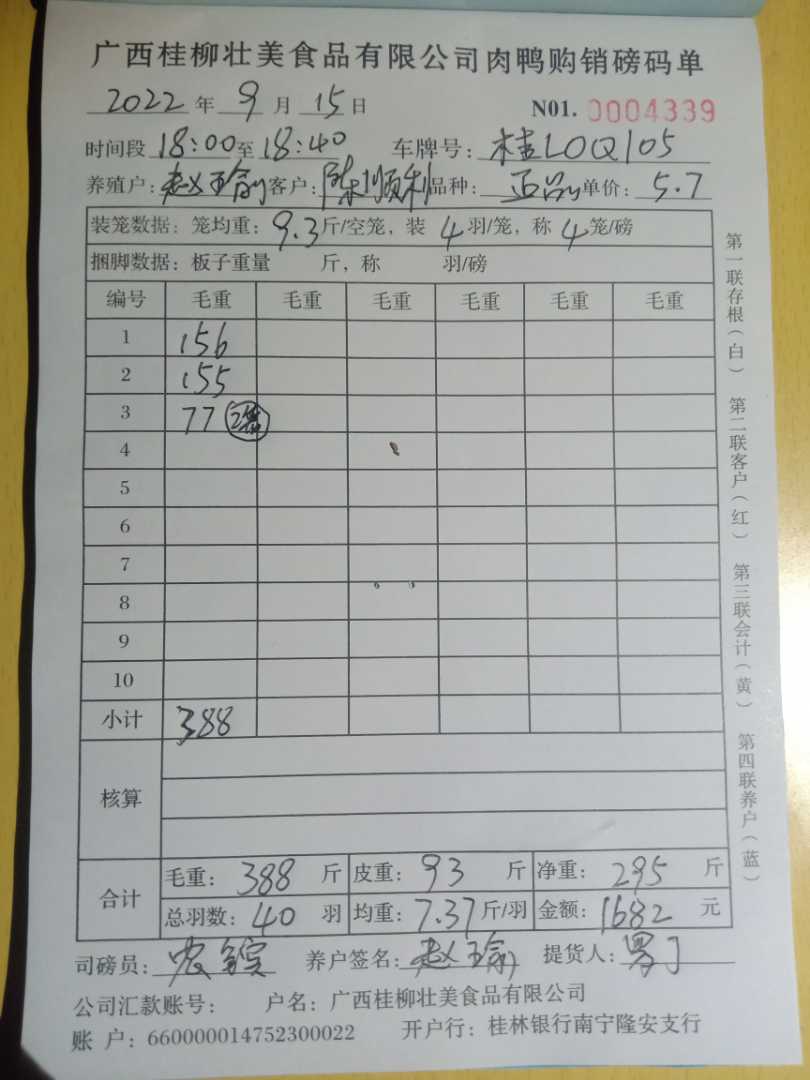 广西桂柳壮美食品有限公司肉鸭购销磅码单
2022年9月15日 N01. 0004339
时间段18:00至18:40 车牌号：桂L0Q105
养殖户：赵玉 客户：陈顺利 品种：正品 单价：5.7
装笼数据：笼均重：9.3斤/空笼，装4羽/笼，称4笼/磅
捆脚数据：板子重量 斤，称 羽/磅
编号 毛重 毛重 毛重 毛重 毛重 毛重
1 156
2 155
3 77 2笼
4
5
6
7
8
9
10
小计 388
核算
合计 毛重：388斤 皮重：93斤 净重：295斤
总羽数：40羽 均重：7.37斤/羽 金额：1682元
司磅员： 养户签名：赵玉 提货人：
公司汇款账号： 户名：广西桂柳壮美食品有限公司
账 户：660000014752300022 开户行：桂林银行南宁隆安支行
第一联存根（白） 第二联客户（红） 第三联会计（黄） 第四联养户（蓝）